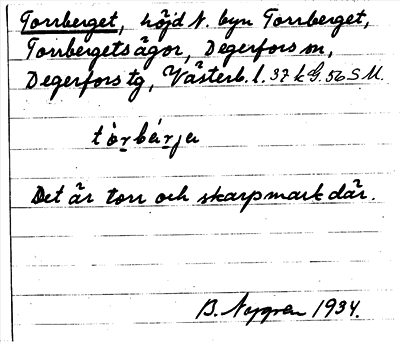 Torrberget, höjd N. byn Torrberget,
Torrbergets ägor, Degerfors sn,
Degerfors tg, Västerb. l. 37 k G. 56 S M.
tòrbárja
Det är torr och skarpmark där.
B. Nygren 1934.